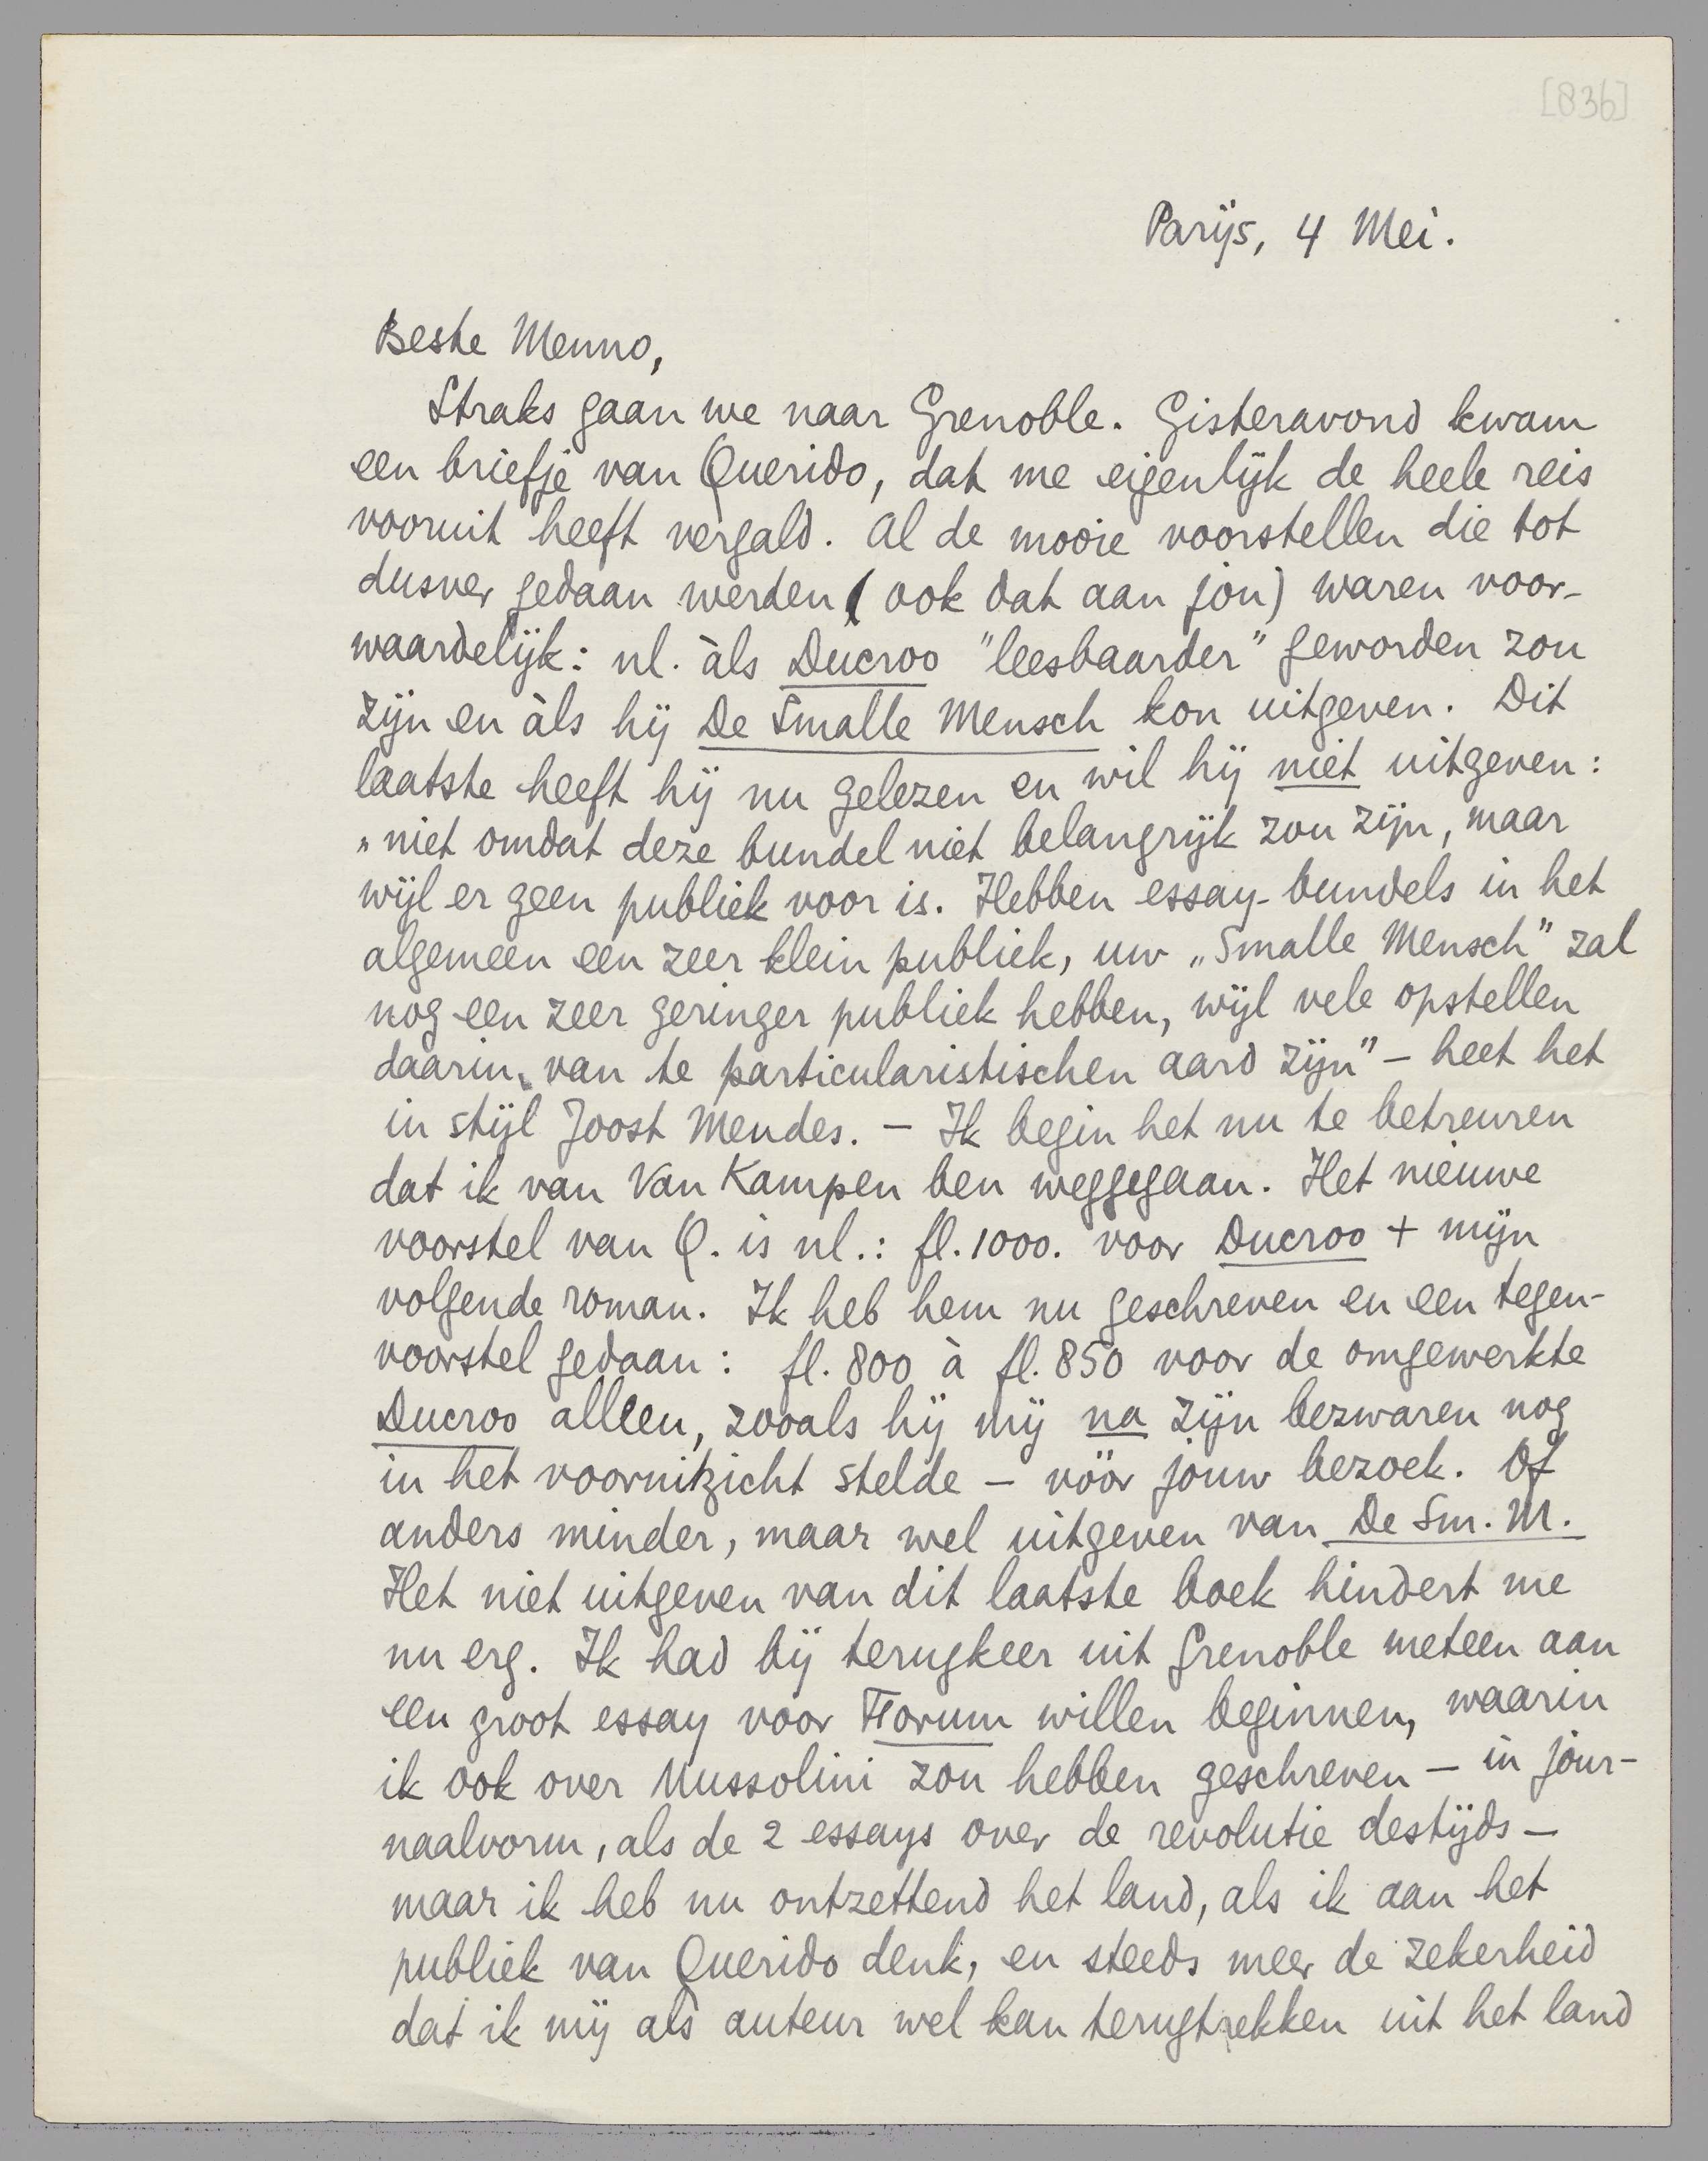 [836]
Parijs, 4 Mei.
Beste Menno,
Straks gaan we naar Grenoble. Gisteravond kwam
een briefje van Querido, dat me eigenlijk de heele reis
vooruit heeft vergald. Al de mooie voorstellen die tot
dusver gedaan werden (ook dat aan jou) waren voor-
waardelijk: nl. àls Ducroo "leesbaarder" geworden zou
zijn en àls hij De Smalle Mensch kon uitgeven. Dit
laatste heeft hij nu gelezen en wil hij niet uitgeven:
„niet omdat deze bundel niet belangrijk zou zijn, maar
wijl er geen publiek voor is. Hebben essay-bundels in het
algemeen een zeer klein publiek, uw „Smalle Mensch" zal
nog een zeer geringer publiek hebben, wijl vele opstellen
daarin van te particularistischen aard zijn" – heet het
in stijl Joost Mendes. – Ik begin het nu te betreuren
dat ik van Van Kampen ben weggegaan. Het nieuwe
voorstel van Q. is nl.: fl. 1000. voor Ducroo + mijn
volgende roman. Ik heb hem nu geschreven en een tegen-
voorstel gedaan: fl. 800 à fl. 850 voor de omgewerkte
Ducroo alleen, zooals hij mij na zijn bezwaren nog
in het vooruitzicht stelde – vóór jouw bezoek. Of
anders minder, maar wel uitgeven van De Sm. M.
Het niet uitgeven van dit laatste boek hindert me
nu erg. Ik had bij terugkeer uit Grenoble meteen aan
een groot essay voor Forum willen beginnen, waarin
ik ook over Mussolini zou hebben geschreven – in jour-
naalvorm, als de 2 essays over de revolutie destijds –
maar ik heb nu ontzettend het land, als ik aan het
publiek van Querido denk, en steeds meer de zekerheid
dat ik mij als auteur wel kan terugtrekken uit het land